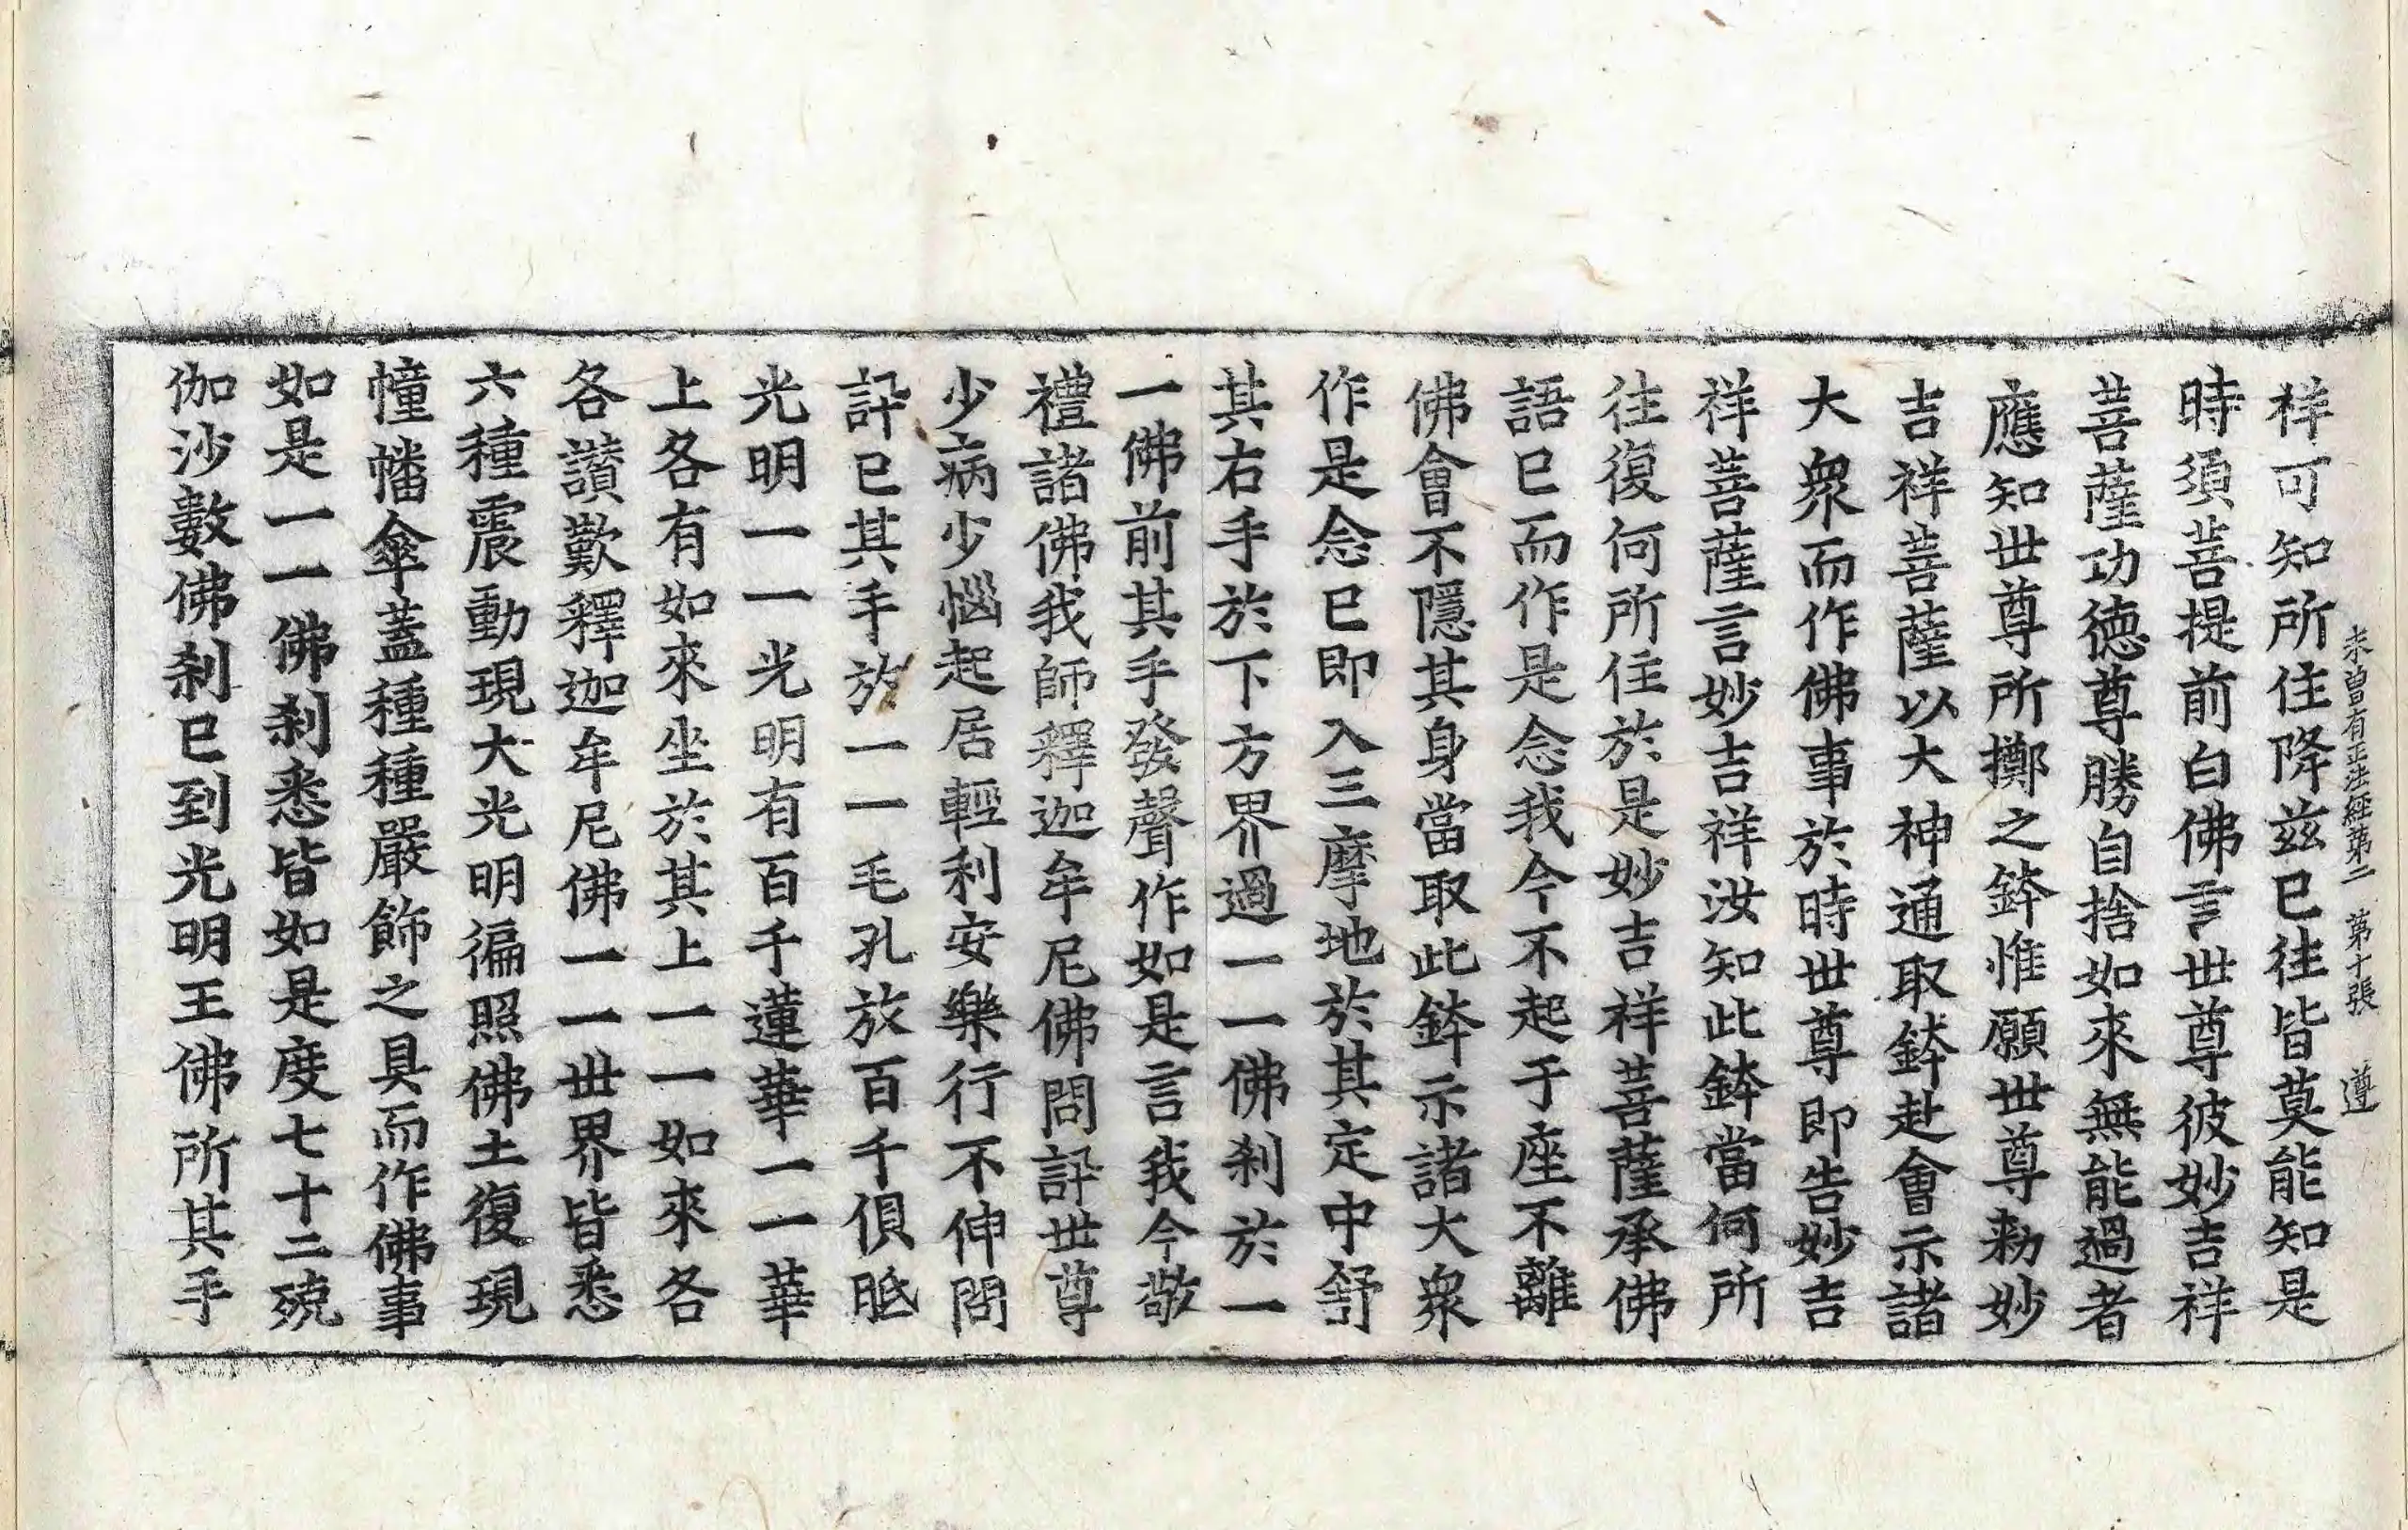 未曾有正法經第二 第十張 遵
祥可知所住降茲已往皆莫能知是
時須菩提前白佛言世尊彼妙吉祥
菩薩功德尊勝自捨如來無能過者
應知世尊所擲之鉢惟願世尊勑妙
吉祥菩薩以大神通取鉢赴會示諸
大衆而作佛事於時世尊即告妙吉
祥菩薩言妙吉祥汝知此鉢當何所
往復何所住於是妙吉祥菩薩承佛
語已而作是念我今不起于座不離
佛會不隱其身當取此鉢示諸大衆
作是念已即入三摩地於其定中舒
其右手於下方界過一一佛刹於一
一佛前其手發聲作如是言我今敬
禮諸佛我師釋迦牟尼佛問訊世尊
少病少惱起居輕利安樂行不伸問
訊已其手於一一毛孔放百千俱胝
光明一一光明有百千蓮華一一華
上各有如來坐於其上一一如來各
各讃歎釋迦牟尼佛一一世界皆悉
六種震動現大光明徧照佛土復現
幢幡傘蓋種種嚴飾之具而作佛事
如是一一佛刹悉皆如是度七十二殑
伽沙數佛刹已到光明王佛所其手